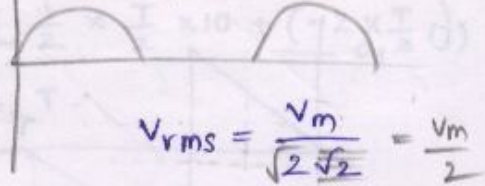 Vrms = Vm / √2 √2 = Vm / 2